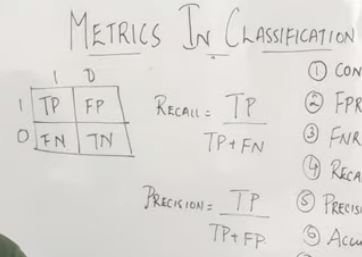 METRICS IN CLASSIFICATION
1 0
1 TP FP
0 FN TN
RECALL = TP
TP+FN
PRECISION = TP
TP+FP
① CON
② FPR
③ FNR
④ RECA
⑤ PRECIS
⑥ ACCU